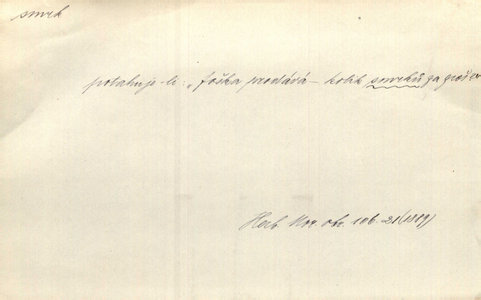 smrk
potahuje-li: „foška prodává – kolik smrků za groš
Herb. Mor. obr. 106. 21 (1889)